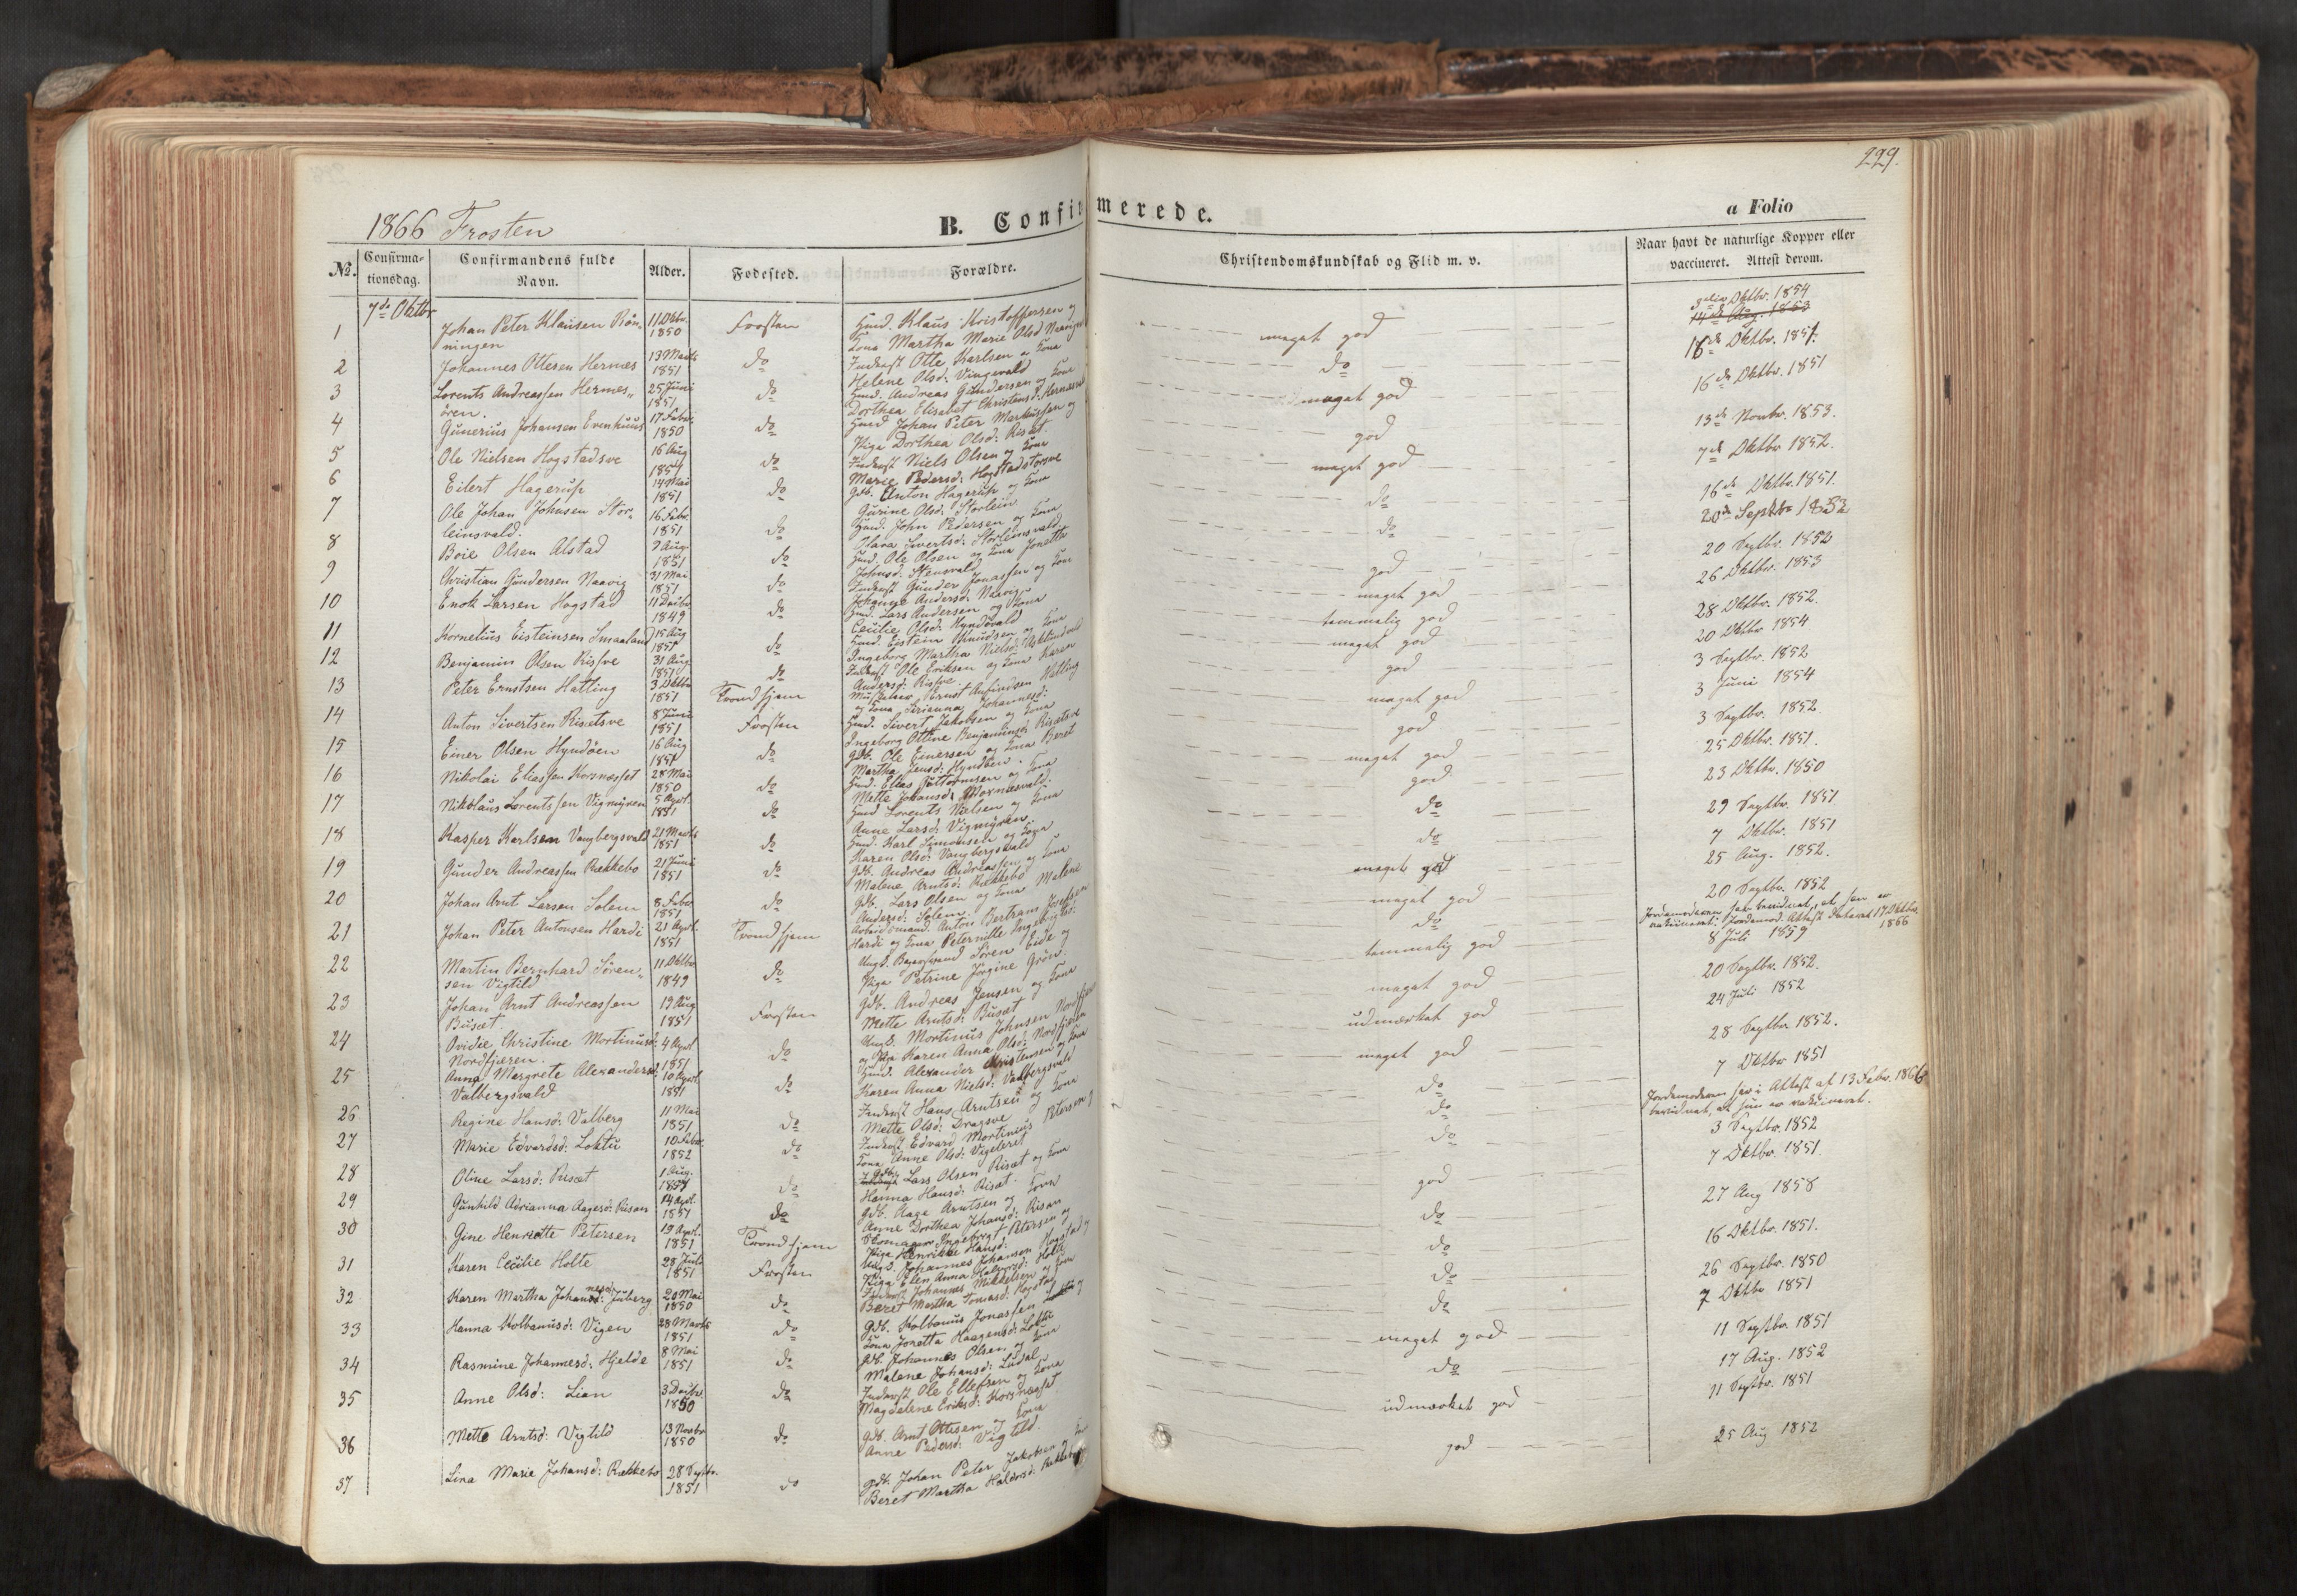 229.
1866 Frosten
B. Confirmerede.
a Folio
No. Confirma-tionsdag. Confirmandens fulde Navn. Alder. Fødested. Forældre. Christendomskundskab og Flid m. v. Naar havt de naturlige Kopper eller vaccineret. Attest derom.
7de Oktbr
1 Johan Peter Klausen Rön- 11 Oktbr. Frosten Husd. Klaus Kristoffersen og meget god Oktbr. 1854
ningen 1850 Kona Martha Marie Olsd 14de Aug. 1853
2 Johannes Ottesen Hernæs 13 Marts do Inderst Otte Karlsen og Kona do 16de Oktbr. 1851.
1851 Helene Olsd: Vingsvald
3 Lorents Andreassen Hernes- 25 Juni do Husd. Andreas Gundersen og Kona meget god 16de Oktbr. 1851
ören. 1851 Dorthea Elisabet Christensd:
4 Gunerius Johansen Evenhuus 17 Febr. do Husd Johan Peter Markussen og god 13de Novbr. 1853.
1850 Pige Dorthea Olsd: Risæt.
5 Ole Nielsen Hogstadsve 16 Aug do Inderst Niels Olsen og Kona meget god 7de Oktbr 1852.
1851 Marie Pedersd:
6 Eilert Hagerup 14 Mai do Gdb. Anton Hagerup og Kona do 16de Oktbr. 1851.
1851 Gurine Olsd: Storlein
7 Ole Johan Johnsen Stor- 16 Febr. do Husd. John Pedersen og Kona do 20de Septbr 1853
leinsvald. 1851 Sivertsd: Storleinsvald
8 Boie Olsen Alstad 9 Aug. do Husd. Ole Olsen og Kona Jonetta god 20 Septbr. 1852
1851 Johnsd: Stensvald
9 Christian Gundersen Naavig 31 Mai do Inderst Gunder Jonassen og Kona meget god 26 Oktbr. 1853
1851 Johanne Andersd: Naavig
10 Enok Larsen Hogstad 11 Decbr do Husd. Lars Andersen og Kona temmelig god 28 Oktbr. 1852.
1849 Cecilie Olsd: Hyndövald
11 Kornelius Eisteinsen Smaaland 15 Aug do Husd. Eistein Knudsen og Kona meget god 20 Oktbr 1854
1851 Ingeborg Martha Nielsd:
12 Benjamin Olsen Rissve 31 Aug do Inderst Ole Eriksen og Kona Karen god 3 Septbr. 1852
1851 Andersd: Risve.
13 Peter Ernstsen Hatling 3 Oktbr Trondhjem Ernst Hatling meget god 3 Juni 1854
1851 og Kona Johannesd:
14 Anton Sivertsen Risætsve 8 Juni Frosten Husd. Sivert Jakobsen og Kona god 3 Septbr. 1852.
1851 Ingeborg Ottine Benjaminsd: Risætsve
15 Einer Olsen Hyndöen 16 Aug do Gdb. Ole Einersen og Kona Beret meget god 25 Oktbr. 1851.
1851 Martha Jensd: Hyndöen.
16 Nikolai Eliassen Korsnæsset 28 Mai do Husd. Elias Guttormsen og Kona god 23 Oktbr. 1850
1850 Mette Johansd:
17 Nikolaus Lorentssen Vigmyren 5 April. do Husd Lorents Nielsen og Kona do 29 Septbr. 1851
1851 Anne Larsd: Vigmyren.
18 Kasper Karlsen Vangbergsvald 21 Marts do Husd. Karl Simonsen og Kona do 7 Oktbr. 1851
1851 Karen Olsd: Vangbergsvald
19 Gunder Andreassen Rækkebo 21 Juni do Gdb. Andreas Andreassen og Kona meget god 25 Aug. 1852.
1851 Malene Arntsd: Rækkebo
20 Johan Arnt Larsen Solem 8 Febr. do Gdb. Lars Olsen og Kona Malene meget god 20 Septbr. 1852
1851 Andersd: Solem.
21 Johan Peter Antonsen Hardi 21 April. Trondhjem Arbeidsmand. Anton Bertram Josefsen do Jordemoderen har bevidnet, at han er
1851 Hardi og Kona Peternille vakcineret: Jordemod. Attest dateret 17 Oktbr. 1866
22 Martin Bernhard Sören- 11 Oktbr do Ungk. Sören Eide og temmelig god 8 Juli 1859
sen Vigtild 1849 Pige Petrine Jörgine Grön.
23 Johan Arnt Andreassen 19 Aug Frosten Gdb. Andreas Jensen og Kona meget god 20 Septbr. 1852.
Busæt. 1851 Mette Arntsd: Busæt
24 Ovidie Christine Mortinusd: 4 April do Ungk. Mortinus Johnsen Nordfjæren udmærket god 24 Juli 1852
Nordfjæren. 1851 og Pige Karen Anna Olsd: Nordfjæren
25 Anna Margrete Alexandersd: 10 April. do Husd. Alexander Kristensen og Kona meget god 28 Septbr 1852.
Valbergsvald 1851 Karen Anna Nielsd: Valbergsvald
26 Regine Hansd: Valberg 11 Mai do Inderst Hans Arntsen og Kona do 7 Oktbr 1851
1851 Mette Olsd: Dragsve
27 Marie Edvardsd: Loktu 10 Febr. do Inderst Edvard Mortinus Petersen og do Jordemoderen har i Attest af 13 Febr. 1866
1852 Kona Anne Olsd: bevidnet, at hun er vakcineret.
28 Oline Larsd: Risæt 1 Aug. do Gdb. Lars Olsen Risæt og Kona do 3 Septbr. 1852
1851 Hanna Hansd: Risæt.
29 Gunhild Adrianna Aagesd: Risan 14 April. do Gdb. Aage Arntsen og Kona god 7 Oktbr. 1851.
1851 Anne Dorthea Johansd: Risan
30 Gine Henriette Petersen 19 April. Trondhjem Skomager Ingebrigt Petersen og do 27 Aug 1858
1851 Pige Henrikke Hansd:
31 Karen Cecilie Holte 28 Juli Frosten Ungk. Johannes Johansen Hogstad og do 16 Oktbr. 1851.
1851 Pige Elen Anna Holte
32 Karen Martha Johannesd: Juberg 20 Mai do Inderst Johannes Mikkelsen og Kona do 26 Septbr. 1850
1850 Beret Martha Tomasd:
33 Hanna Kolbanusd: Vigen 28 Marts do Gdb. Kolbanus Jonassen og do 7 Oktbr 1851
1851 Kona Jonetta Haagensd: Loktu
34 Rasmine Johannesd: Hjelde 8 Mai do Gdb. Johannes Olsen og Kona meget god 11 Septbr 1851
1851 Malene Johansd:
35 Anne Olsd: Lian 3 Decbr. do Inderst Ole Ellefsen og Kona do 17 Aug. 1852
1850 Magdalene Eriksd: Korsnæsset
36 Mette Arntsd: Vigtild 13 Novbr do Gdb. Arnt Ottesen og Kona udmærket god 11 Septbr. 1851
1850 Anne Pedersd: Vigtild.
37 Lina Marie Johansd: Rækkebo 28 Septbr. do Gdb. Johan Peter Jakobsen og Kona god 25 Aug 1852
1851 Beret Martha Haldorsd: Rækkebo